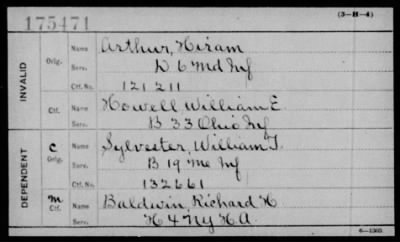 175471
(3-H-4)
INVALID
Orig.
Name Arthur, Hiram
Serv. D 6 Md Inf
Ctf. No. 121211
Ctf.
Name Howell William E.
Serv. B 33 Ohio Inf
DEPENDENT
C
Orig.
Name Sylvester, William T.
Serv. B 19 Me Inf
Ctf. No. 132661
m
Ctf.
Name Baldwin, Richard H
Serv. H 4 Ny H A.
6-1305